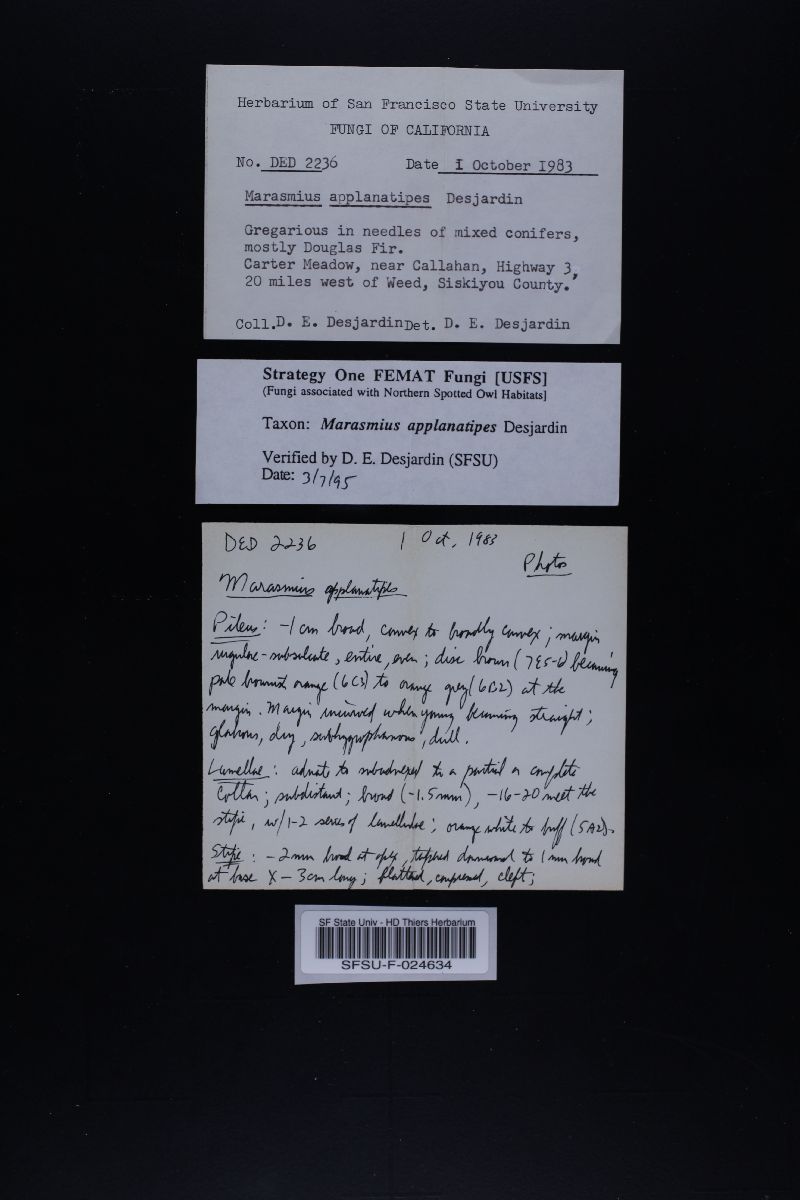 Herbarium of San Francisco State University
FUNGI OF CALIFORNIA
No. DED 2236 Date 1 October 1983
Marasmius applanatipes Desjardin
Gregarious in needles of mixed conifers,
mostly Douglas Fir.
Carter Meadow, near Callahan, Highway 3,
20 miles west of Weed, Siskiyou County.
Coll. D. E. Desjardin Det. D. E. Desjardin
Strategy One FEMAT Fungi [USFS]
(Fungi associated with Northern Spotted Owl Habitats]
Taxon: Marasmius applanatipes Desjardin
Verified by D. E. Desjardin (SFSU)
Date: 3/7/95
DED 2236 1 Oct, 1983
Photos
Marasmius applanatipes
Pileus: -1 cm broad, convex to broadly convex; margin
regular-subsulcate, entire, even; disc brown (7E5-6) becoming
pale brownish orange (6C3) to orange grey (6B2) at the
margin. Margin incurved when young becoming straight;
glabrous, dry, subhygrophanous, dull.
Lamellae: adnate to subadnexed to a partial or complete
collar; subdistant; broad (-1.5mm), -16-20 meet the
stipe, w/1-2 series of lamellulae; orange white to buff (5A2).
Stipe: -2mm broad at apex, tapered downward to 1mm broad
at base X -3cm long; flattened, compressed, cleft;
SF State Univ - HD Thiers Herbarium
SFSU-F-024634